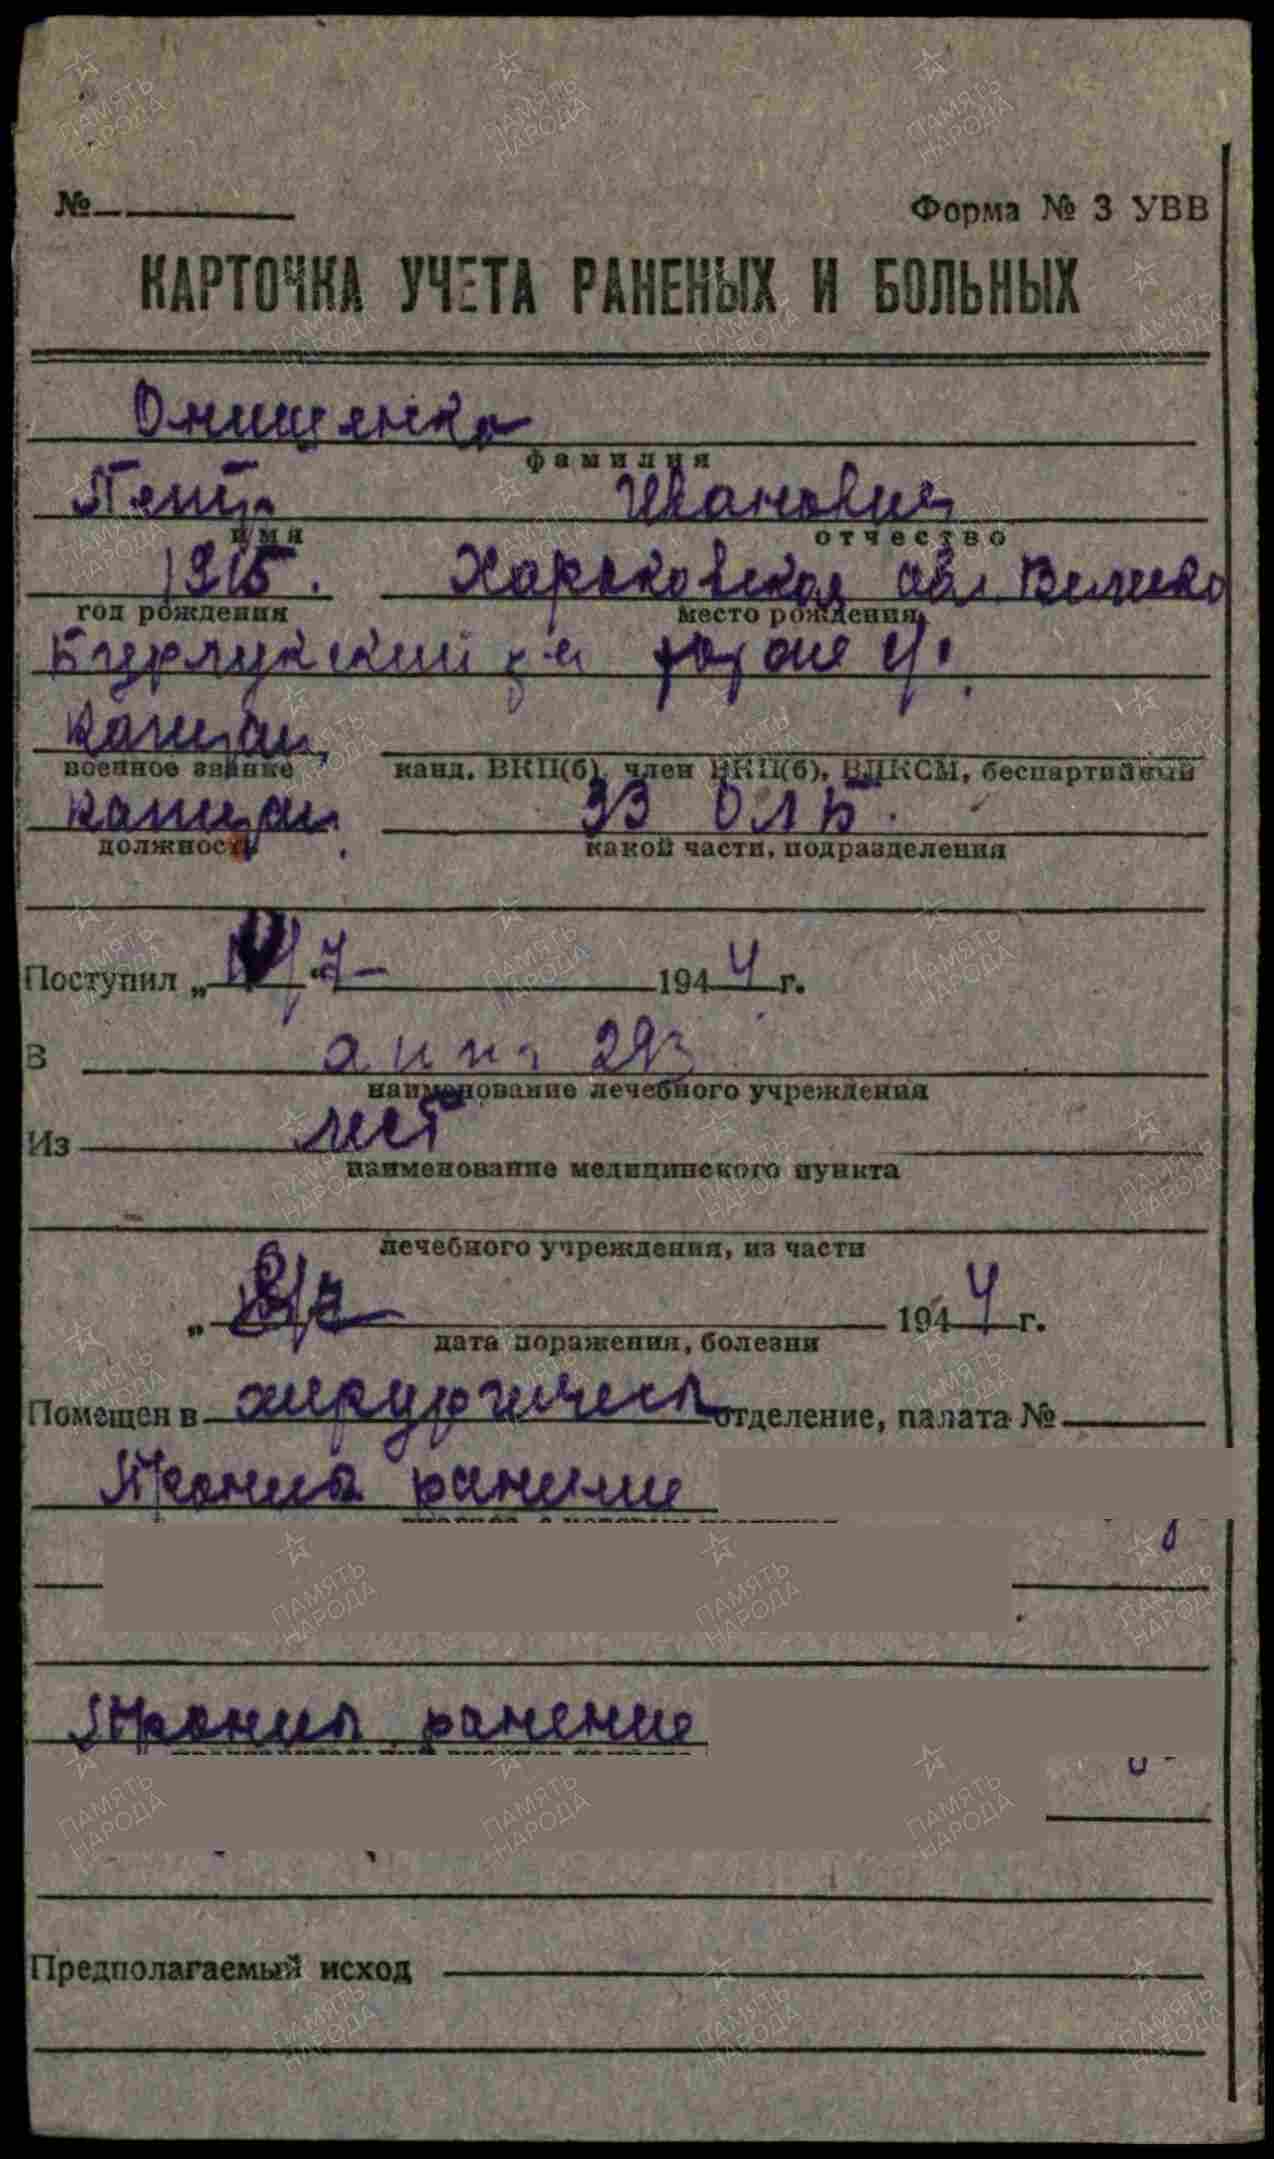 №
Форма № 3 УВВ
КАРТОЧКА УЧЕТА РАНЕНЫХ И БОЛЬНЫХ
Онищенко
фамилия
Петр Иванович
имя отчество
1915. Харьковская обл. Велико
год рождения место рождения
Бурлукский р-н
капитан
военное звание канд. ВКП(б), член ВКП(б), ВЛКСМ, беспартийный
капитан. 33
должность какой части, подразделения
Поступил „ “ 7 1944 г.
В
наименование лечебного учреждения
Из
наименование медицинского пункта
лечебного учреждения, из части
„ 1944 г.
дата поражения, болезни
Помещен в хирургическ отделение, палата №
ранение
диагноз, с которым поступил
ранение
Предполагаемый исход
ПАМЯТЬ НАРОДА